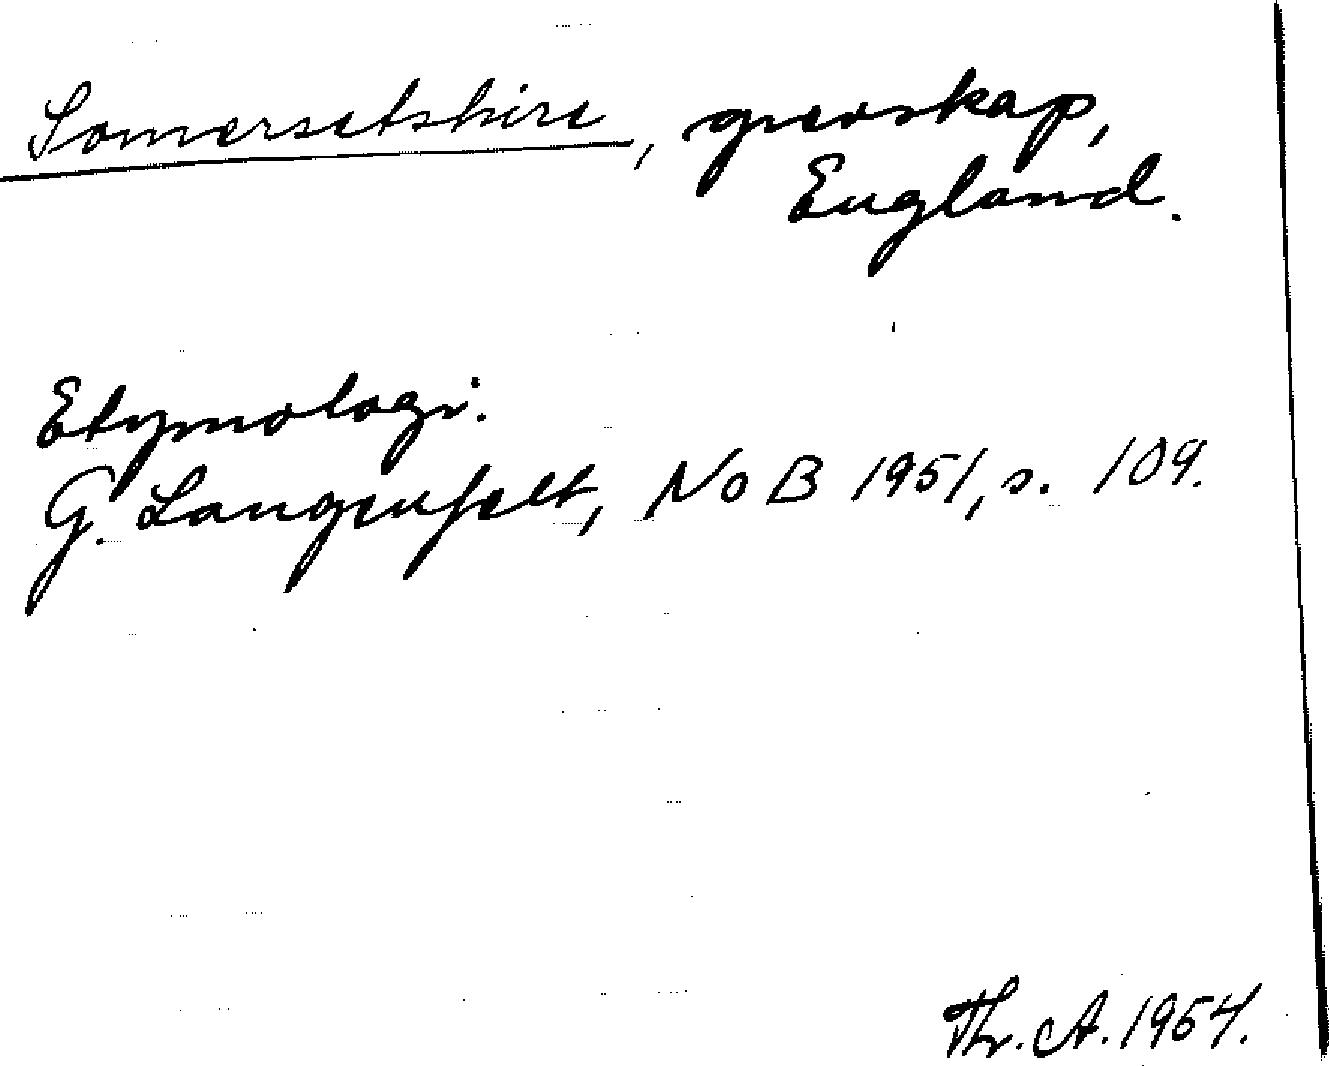 Somersetshire, grevskap,
England.
Etymologi.
G. Langenfelt, NoB 1951, s. 109.
Th. A. 1954.